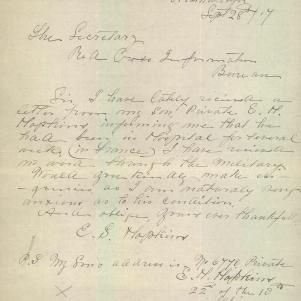 Sept 28th 17
The Secretary
Red Cross Information
Bureau
Sir, I have lately received a
letter from my Son Private E. H.
Hopkins informing me that he
had been in Hospital for several
weeks (in France) I have received
no word through the Military.
Would you kindly make en-
quiries as I am naturally very
anxious as to his condition.
And oblige yours ever thankful.
E. S. Hopkins
P.S My Sons address is No 6770 Private
E. H. Hopkins
22nd of the 10th
X